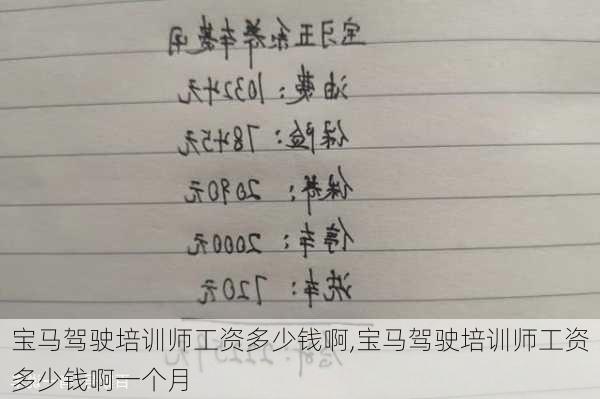 宝马五系养车费用
油费：10324元
保险：7845元
保养：2090元
停车：2000元
洗车：720元
宝马驾驶培训师工资多少钱啊,宝马驾驶培训师工资
多少钱啊一个月